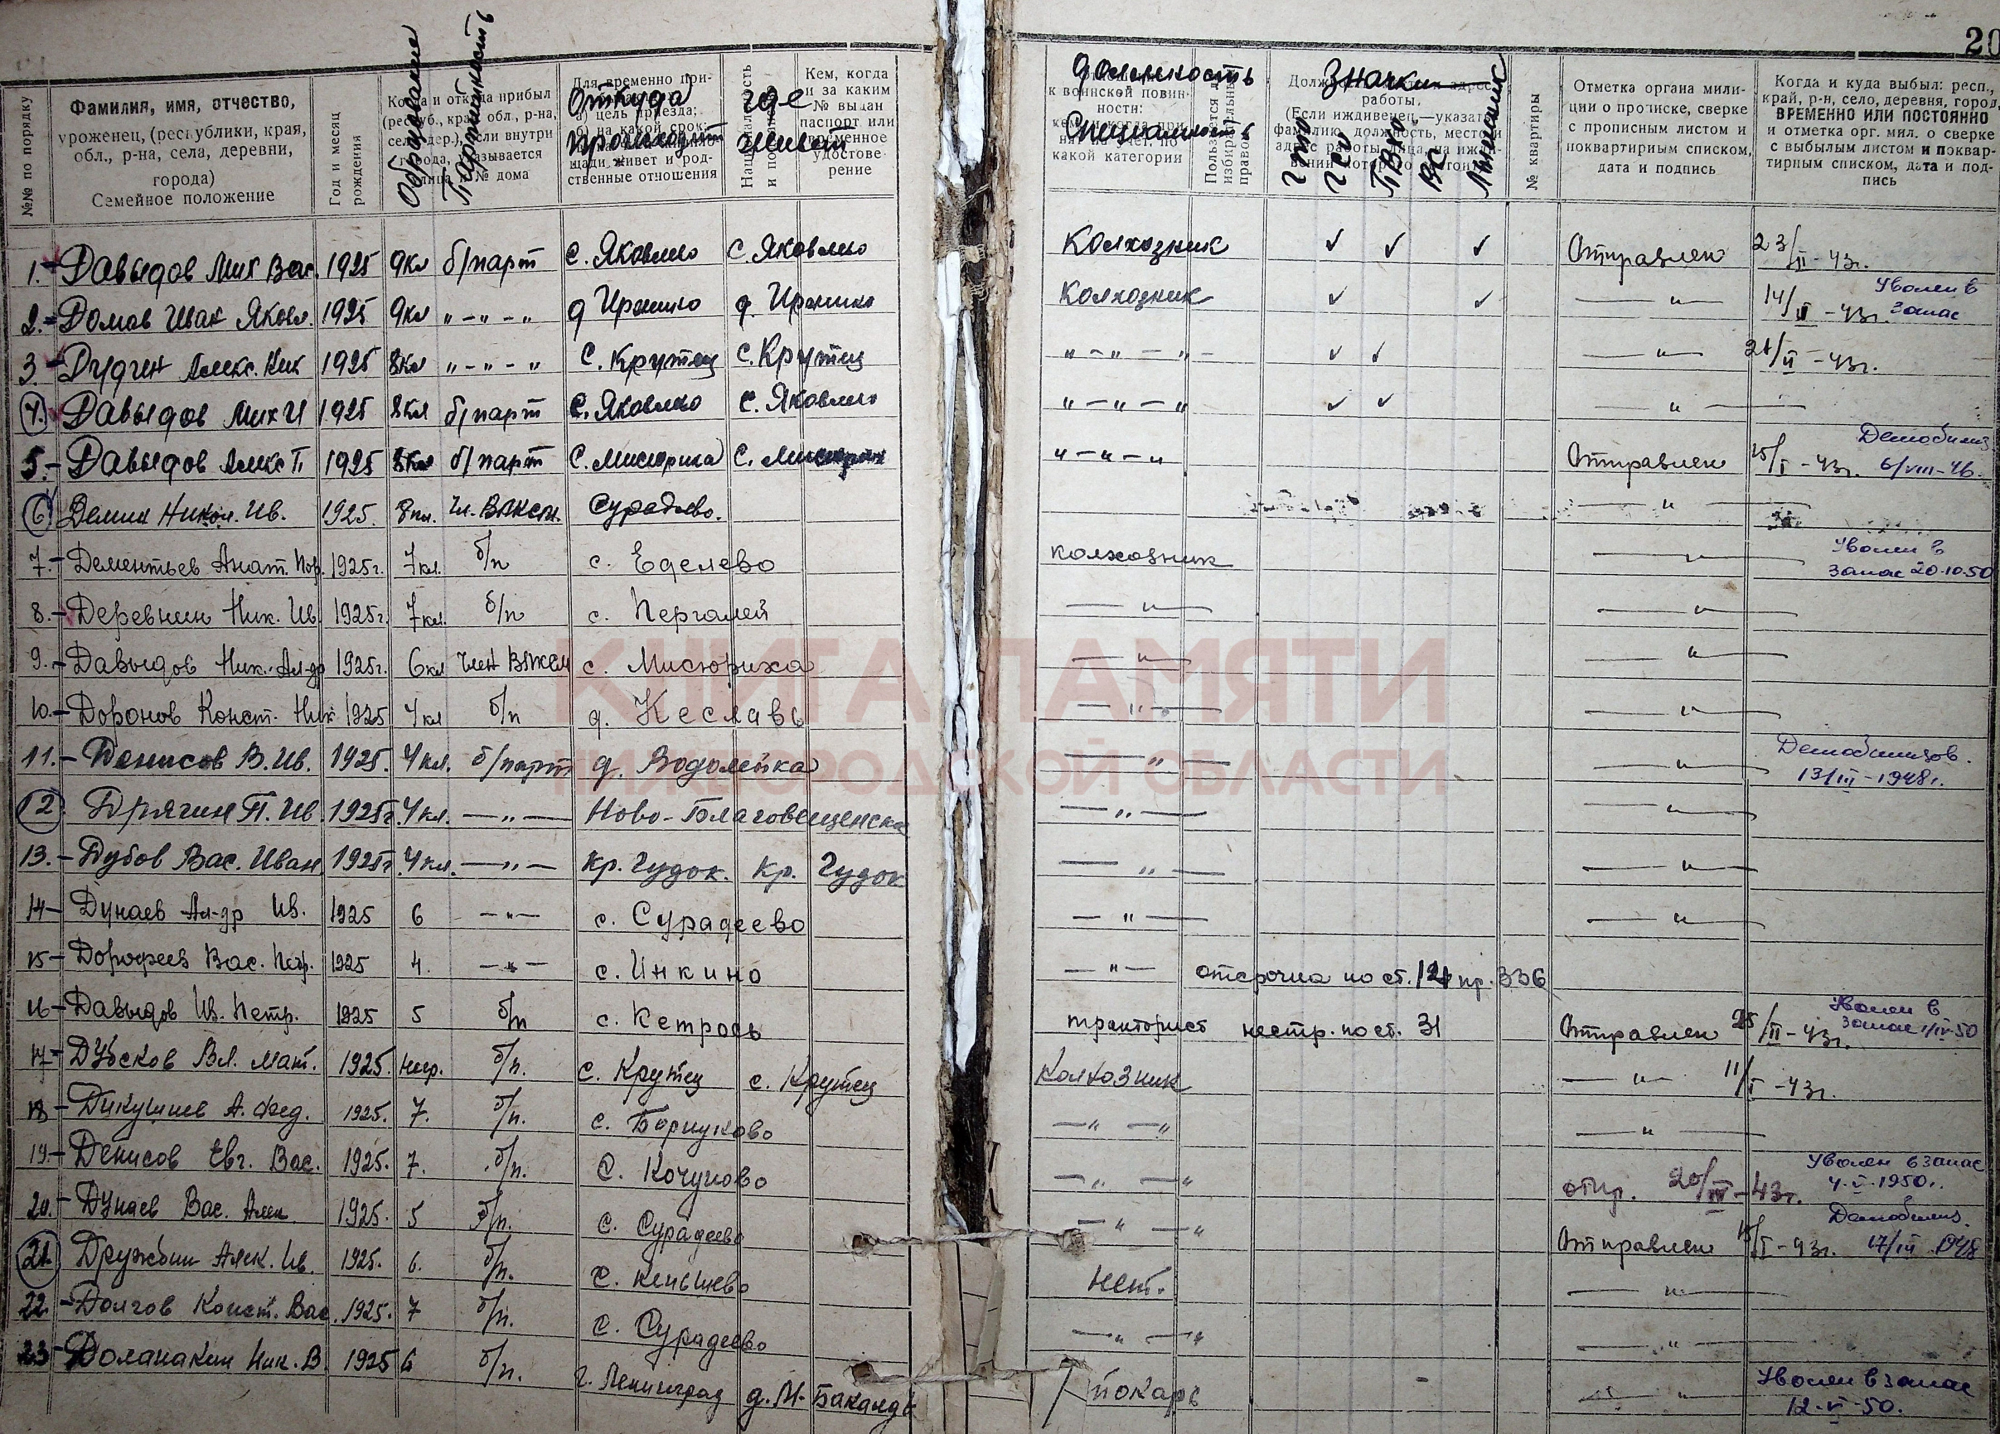 20
№№ по порядку
Фамилия, имя, отчество,
уроженец, (республики, края,
обл., р-на, села, деревни,
города)
Семейное положение
Год и месяц
рождения
Образование
Партийность
Откуда происходит
где живет
Кем, когда
и за каким
№ выдан
паспорт или
временное
удостове-
рение
должность
Специальность
Значки
ГТО
ГСО
ПВХО
ВС
Лыжник
№ квартиры
Отметка органа мили-
ции о прописке, сверке
с прописным листом и
поквартирным списком,
дата и подпись
Когда и куда выбыл: респ.,
край, р-н, село, деревня, город,
ВРЕМЕННО ИЛИ ПОСТОЯННО
и отметка орг. мил. о сверке
с выбылым листом и поквар-
тирным списком, дата и под-
пись
1.- Давыдов Мих Вас. 1925 9кл б/парт с. Яковлево с. Яковлево Колхозник ✓ ✓ ✓ Отправлен 23/II-43г.
2.- Домов Иван Яковл. 1925 9кл " - " - " д д. Колхозник ✓ ✓ — " — 14/ -43г. Уволен в Запас
3.- Дудин Алекс. Ник 1925 8кл " - " - " с. Крутец с. Крутец " - " - " - ✓ ✓ — " — 21/II-43г.
4. Давыдов Мих И 1925 8кл б/парт с. Яковлево с. Яковлево " - " - " ✓ ✓ — " —
5.- Давыдов Алекс П 1925 8кл б/парт с. Мисюриха с. Мисюриха " - " - " Отправлен 15/I-43г. Демобилиз. 6/VIII-46.
6 Демин Никол. Ив. 1925. 8кл. Чл. ВЛКСМ. Сурадеево. — " —
7.- Дементьев Анат. Пав. 1925г. 7кл. б/п с. Еделево колхозник — " — Уволен в Запас 20.10.50
8.- Деревнин Ник. Ив 1925г. 7кл. б/п с. Пергалей — " — — " —
9.- Давыдов Ник. Ал-др 1925г. 6кл член ВЛКСМ с. Мисюриха — " — — " —
10.- Доронов Конст. Ник 1925 4кл б/п д. Кеславь — " — — " —
11.- Денисов В. Ив. 1925. 4кл. б/парт д. Водолейка — " — — " — Демобилизов. 13/III-1948г.
12. Дрягин П. Ив 1925г. 4кл. — " — Ново-Благовещенск — " — — " —
13.- Дубов Вас. Иван 1925г. 4кл. — " — Кр. Гудок. Кр. Гудок — " — — " —
14- Дунаев Ал-др Ив. 1925 6 — " — с. Сурадеево — " — — " —
15- Дорофеев Вас. Петр. 1925 4. — " — с. Инкино — " — отсрочка по ст. 124 пр. 336
16- Давыдов Ив. Петр. 1925 5 б/п с. Кетрось тракторист нестр. по ст. 31 Отправлен 25/II-43г. Уволен в Запас 1/IV-50
17- Дубсков Вл. Мат. 1925. негр. б/п. с. Крутец с. Крутец Колхозник — " — 11/I-43г.
18- Дикушнев А. Фед. 1925. 7. б/п. с. Борнуково — " — " — " —
19.- Денисов Евг. Вас. 1925. 7. б/п. с. Кочуново — " — " отпр. 20/ -43г. Уволен в запас 4.V.1950г.
20.- Дунаев Вас. Алек. 1925. 5 б/п. с. Сурадеево — " — " Отправлен 15/I-43г. Демобилиз. 17/III 1948
21. Дружбин Алек. Ив. 1925. 6. б/п. с. Кенышево нет. — " —
22.- Долгов Конст. Вас. 1925. 7 б/п. с. Сурадеево — " — " — " —
23- Ник. В. 1925 6 б/п. г. Ленинград д. М- Бакалды токарь - — " Уволен в запас 12-V-50.
КНИГА ПАМЯТИ
НИЖЕГОРОДСКОЙ ОБЛАСТИ